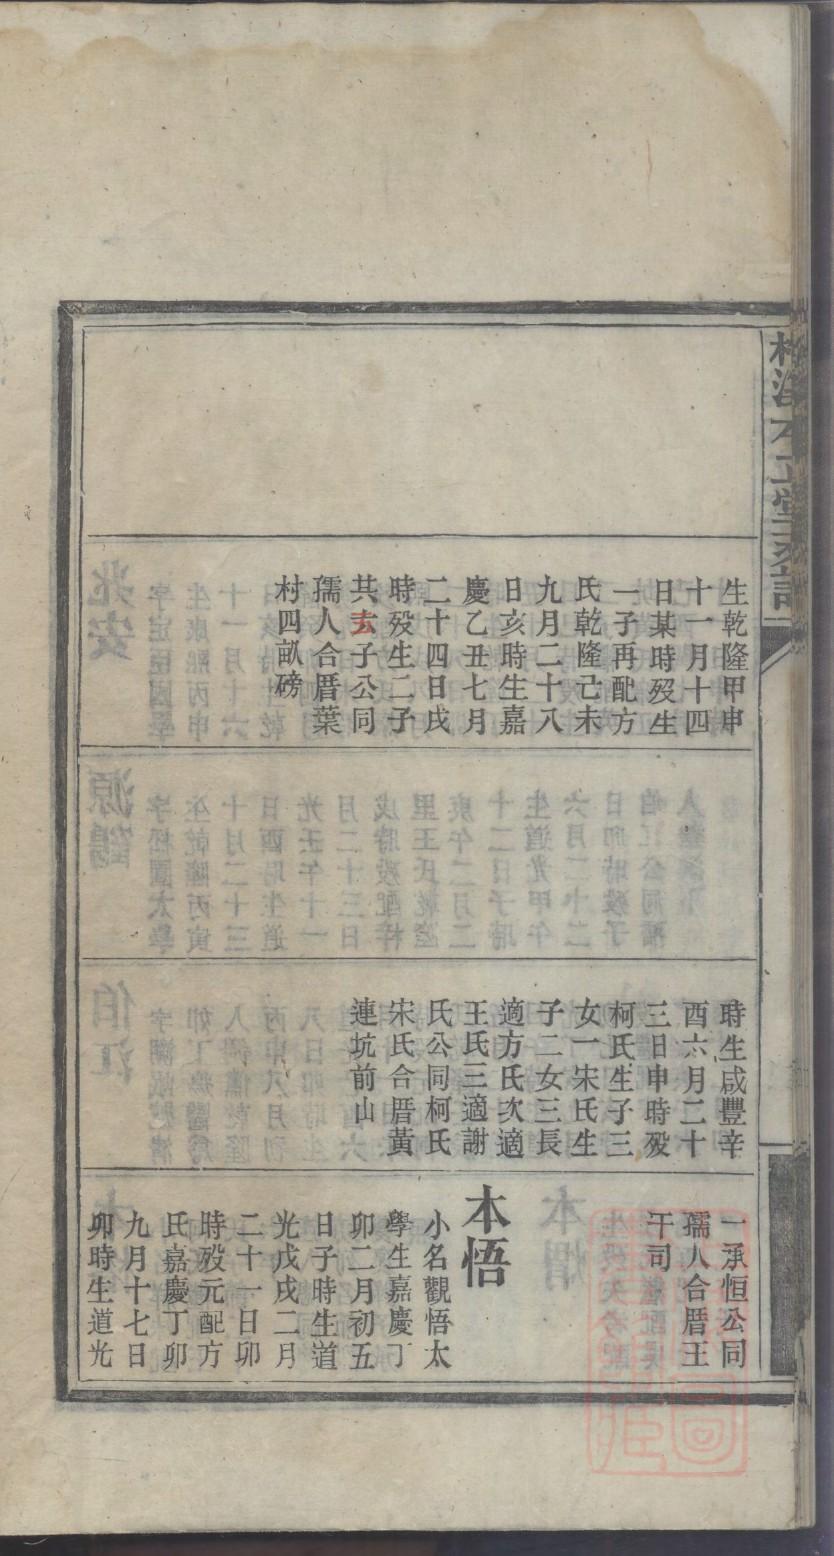 生乾隆甲申
十一月十四
日某時歿生
一子再配方
氏乾隆己未
九月二十八
日亥時生嘉
慶乙丑七月
二十四日戌
時歿生二子
共子公同
孺人合厝葉
村四畝磅
時生咸豐辛
酉六月二十
三日申時歿
柯氏生子三
女一宋氏生
子二女三長
適方氏次適
王氏三適謝
氏公同柯氏
宋氏合厝黃
連坑前山
一承恒公同
孺人合厝王
干司
本悟
小名觀悟太
學生嘉慶丁
卯二月初五
日子時生道
光戊戌二月
二十一日卯
時歿元配方
氏嘉慶丁卯
九月十七日
卯時生道光